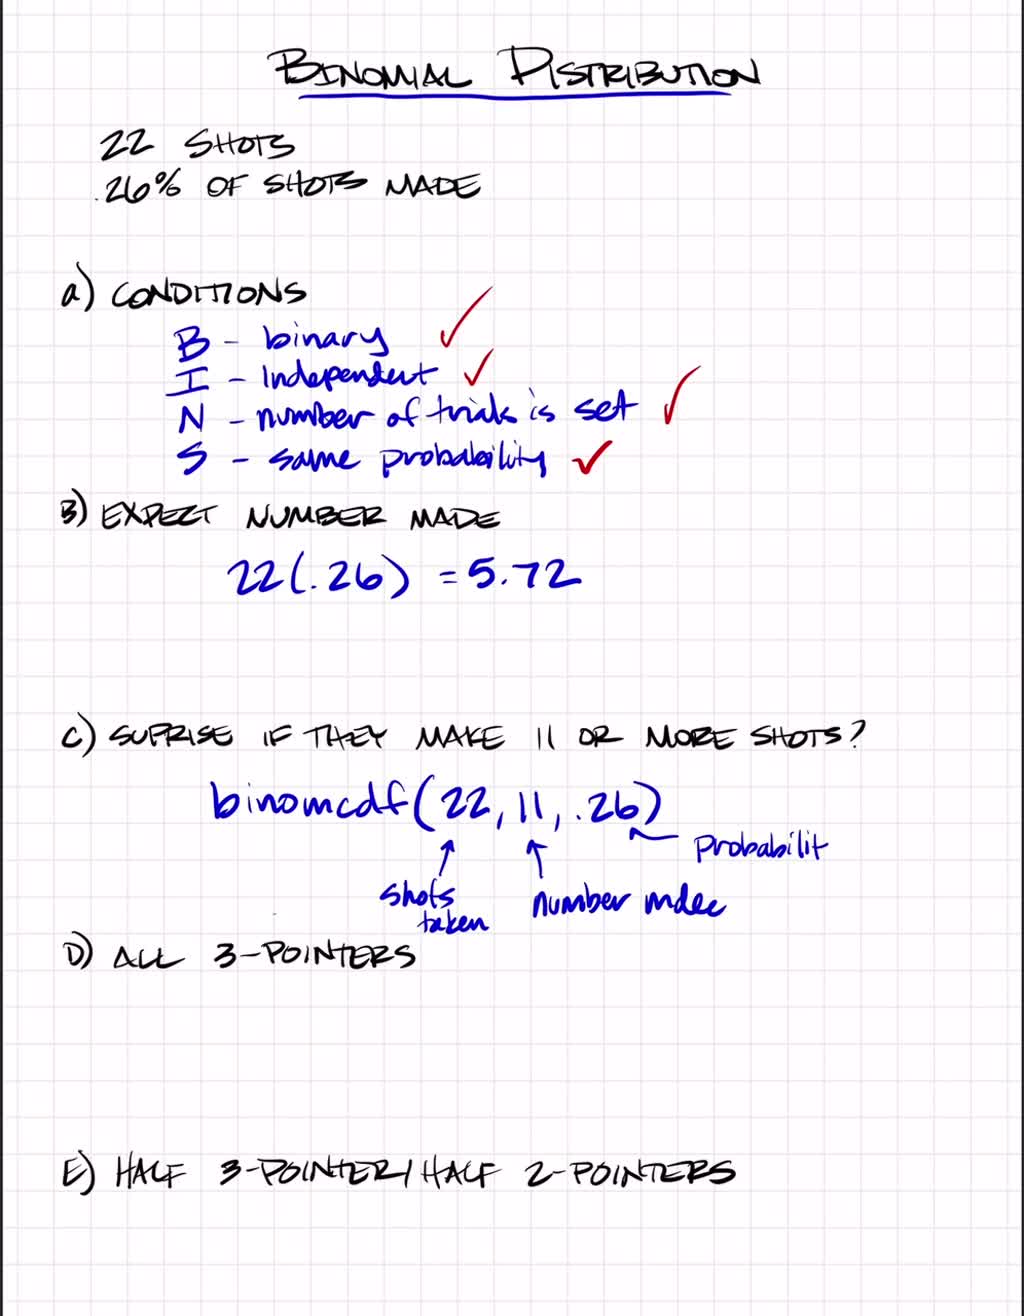 BINOMIAL DISTRIBUTION
22 SHOTS
.26% OF SHOTS MADE
a) CONDITIONS
B - binary ✓
I - Independent ✓
N - number of trials is set ✓
S - same probability ✓
B) EXPECT NUMBER MADE
22(.26) = 5.72
C) SUPRISE IF THEY MAKE 11 OR MORE SHOTS?
binomcdf(22, 11, .26)
probabilit
shots taken
number mdec
D) ALL 3-POINTERS
E) HALF 3-POINTER/HALF 2-POINTERS